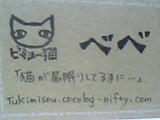 ビミョ〜猫
べべ
「猫が居眠りしてるまに…」
tukinisou.cocolog-nifty.com